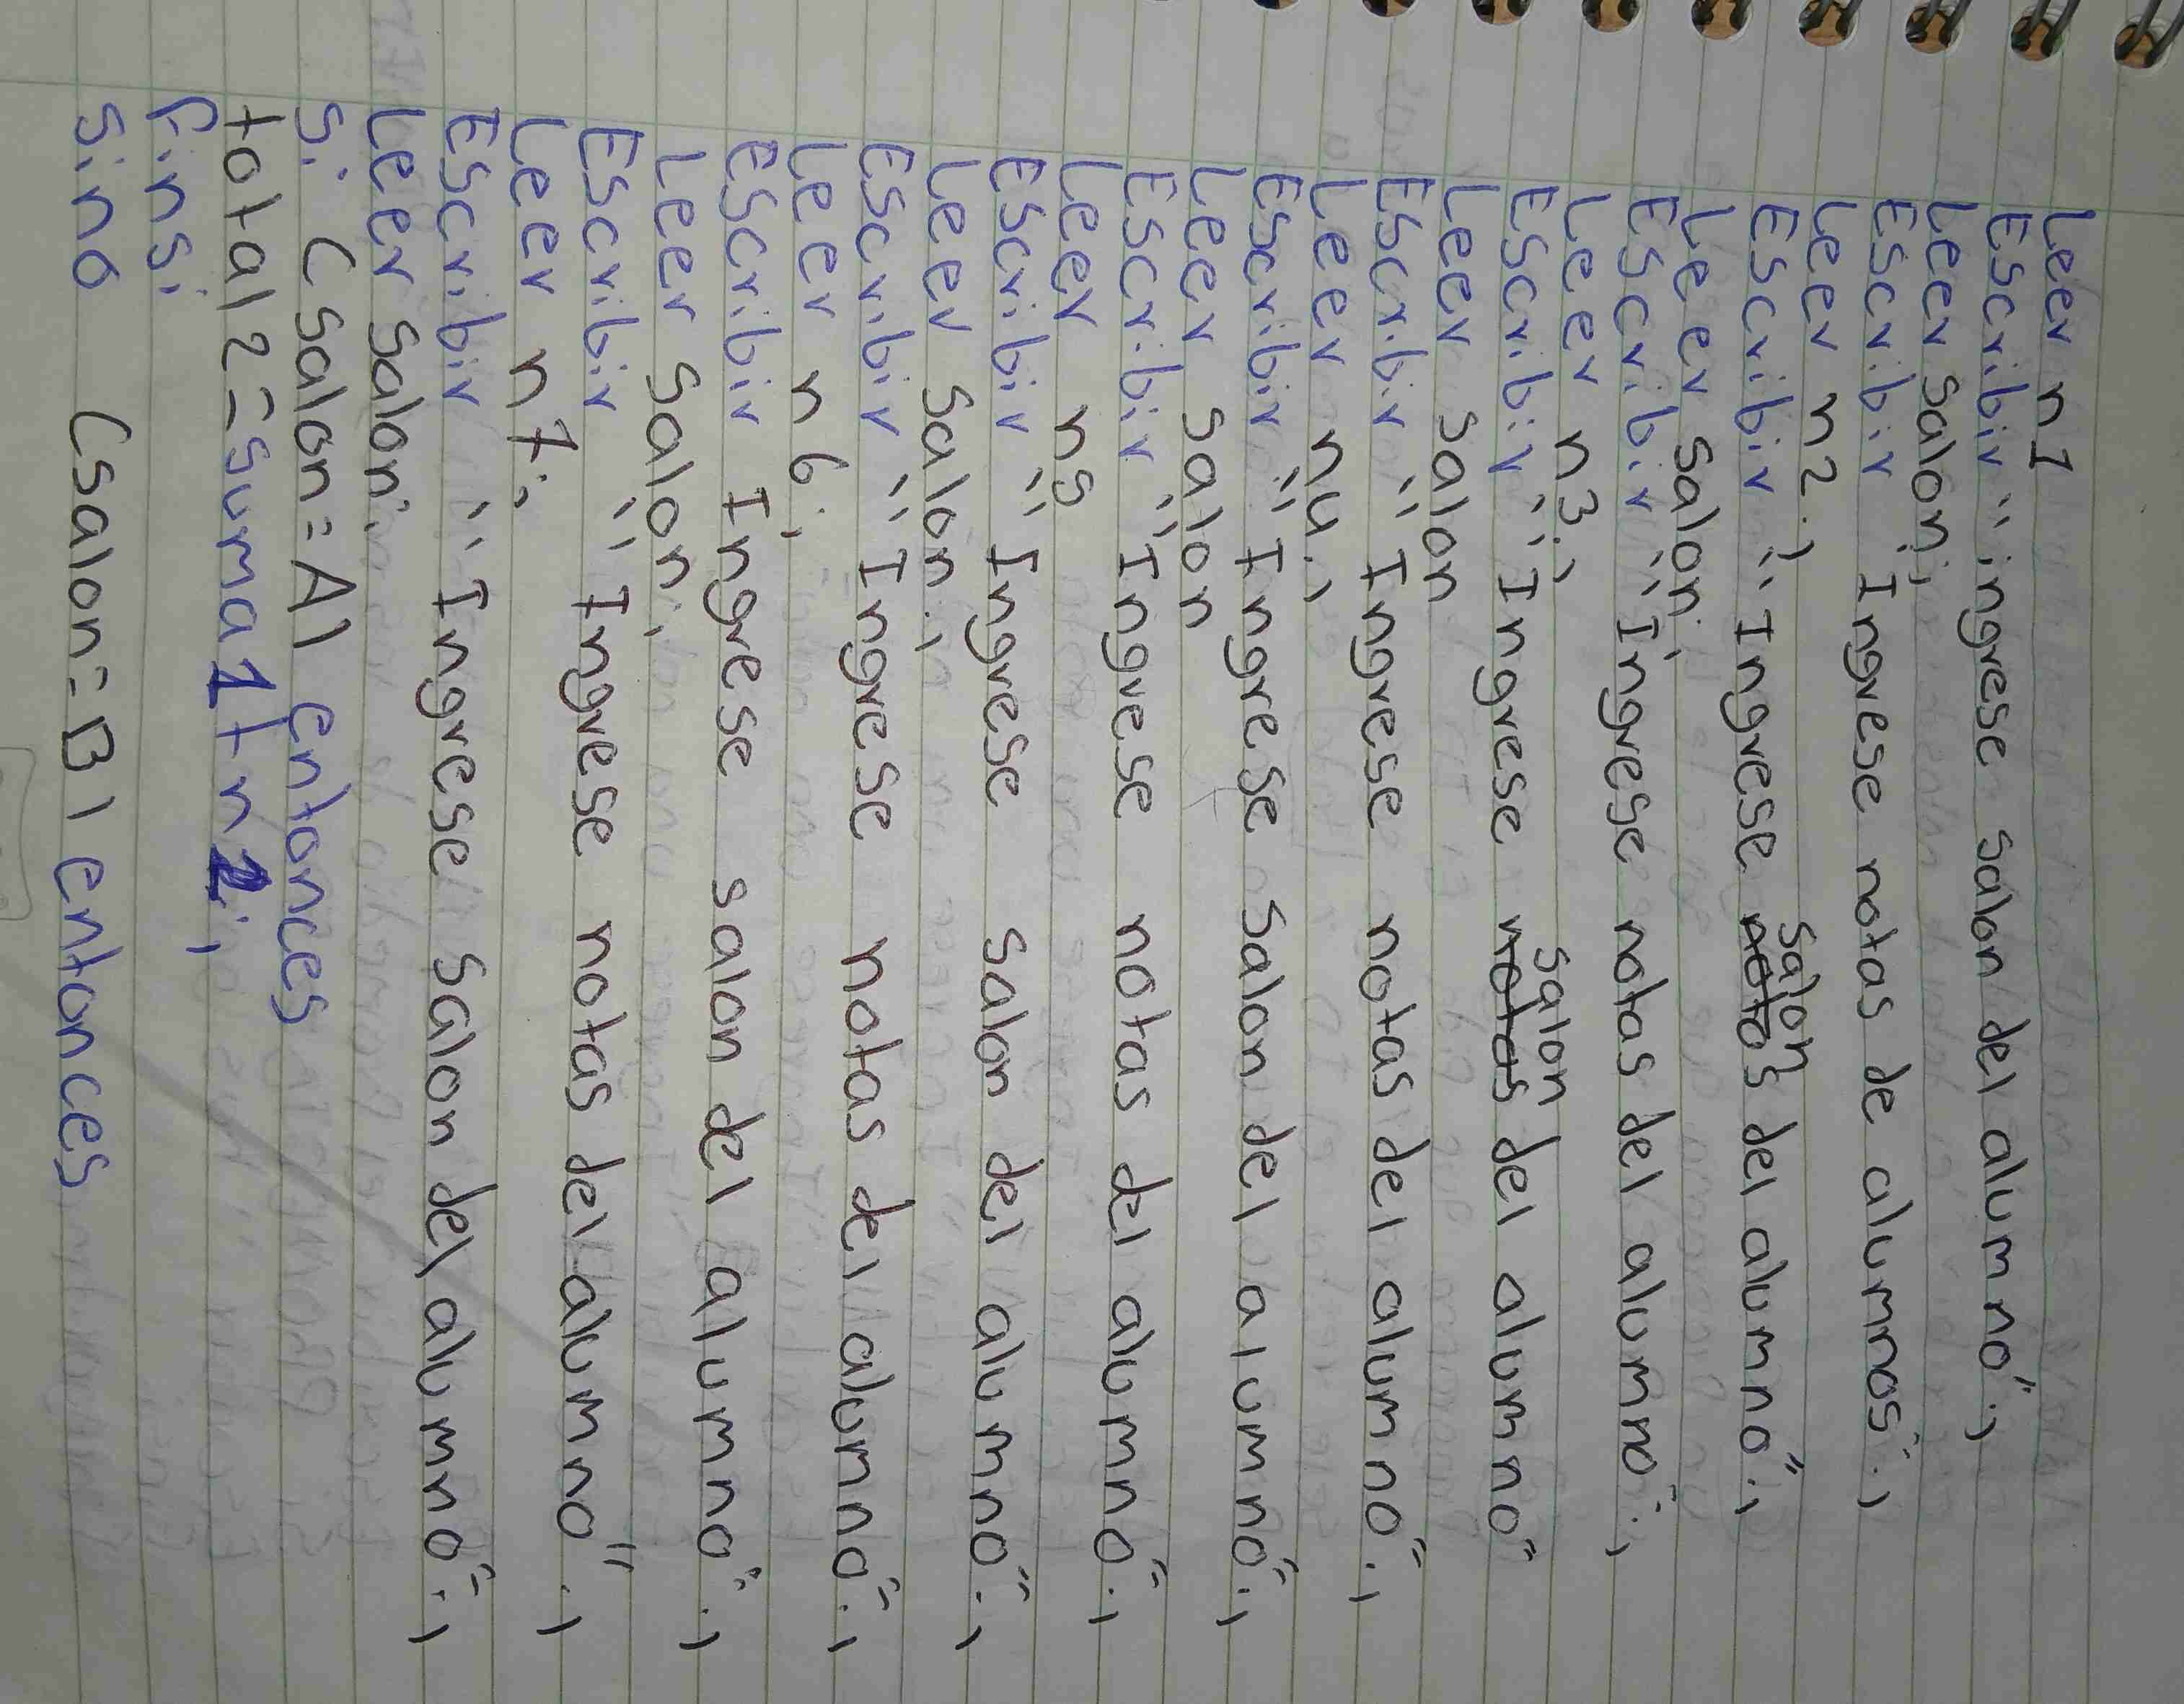 Leer n1
Escribir "ingrese salon del alumno";
Leer salon;
Escribir Ingrese notas de alumnos";
Leer n2;
Escribir "Ingrese salon del alumno";
Leer salon;
Escribir "Ingrese notas del alumno";
Leer n3;
Escribir "Ingrese salon del alumno"
Leer salon
Escribir "Ingrese notas del alumno";
Leer n4;
Escribir "Ingrese salon del alumno";
Leer salon
Escribir "Ingrese notas del alumno";
Leer n5
Escribir "Ingrese salon del alumno";
Leer salon;
Escribir "Ingrese notas del alumno";
Leer n6;
Escribir Ingrese salon del alumno";
Leer salon;
Escribir "Ingrese notas del alumno";
Leer n7;
Escribir "Ingrese salon del alumno";
Leer salon;
Si (salon=A) entonces
total2=suma1+n2;
finsi
sino (salon=B) entonces